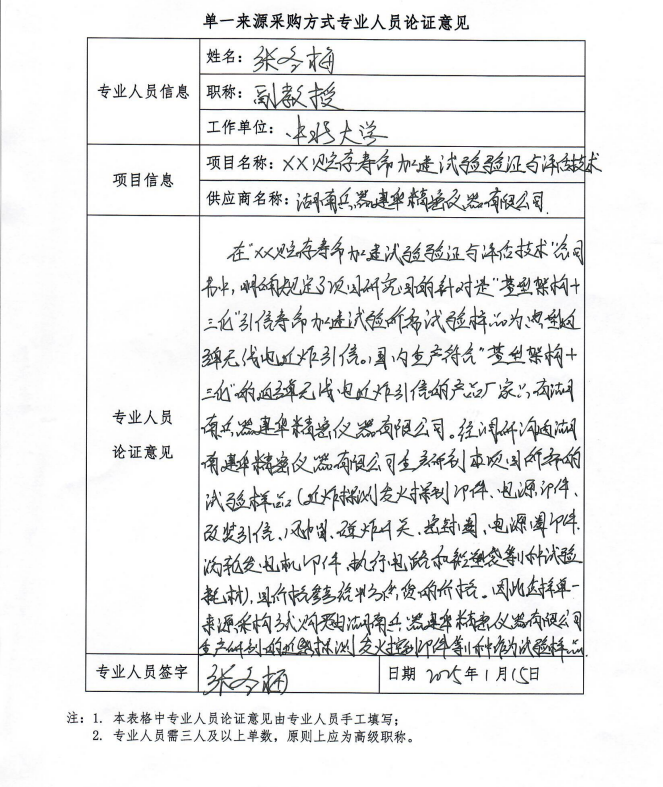 单一来源采购方式专业人员论证意见
专业人员信息
姓名：张冬梅
职称：副教授
工作单位：中北大学
项目信息
项目名称：XX贮存寿命加速试验验证与评估技术
供应商名称：湖南兵器建华精密仪器有限公司
专业人员
论证意见
在"XX贮存寿命加速试验验证与评估技术"合同
书中，明确规定了项目研究目的针对是"典型架构+
三化"引信寿命加速试验所需试验样品为典型迫
弹无线电近炸引信。国内生产符合"典型架构+
三化"的迫弹无线电近炸引信的产品厂家只有湖
南兵器建华精密仪器有限公司。经调研沟通湖
南建华精密仪器有限公司生产研制本项目所需的
试验样品（近炸探测发火控制部件、电源部件、
改装引信、风帽、碰炸开关、密封圈、电源部件、
涡轮发电机部件、执行电路和等
耗材），且价格。因此选择单一
来源采购方式购买湖南兵器建华精密仪器有限公司
生产研制的近炸探测发火控制部件等作为试验样品.
专业人员签字
张冬梅
日期 2025年1月15日
注：1. 本表格中专业人员论证意见由专业人员手工填写；
2. 专业人员需三人及以上单数，原则上应为高级职称。